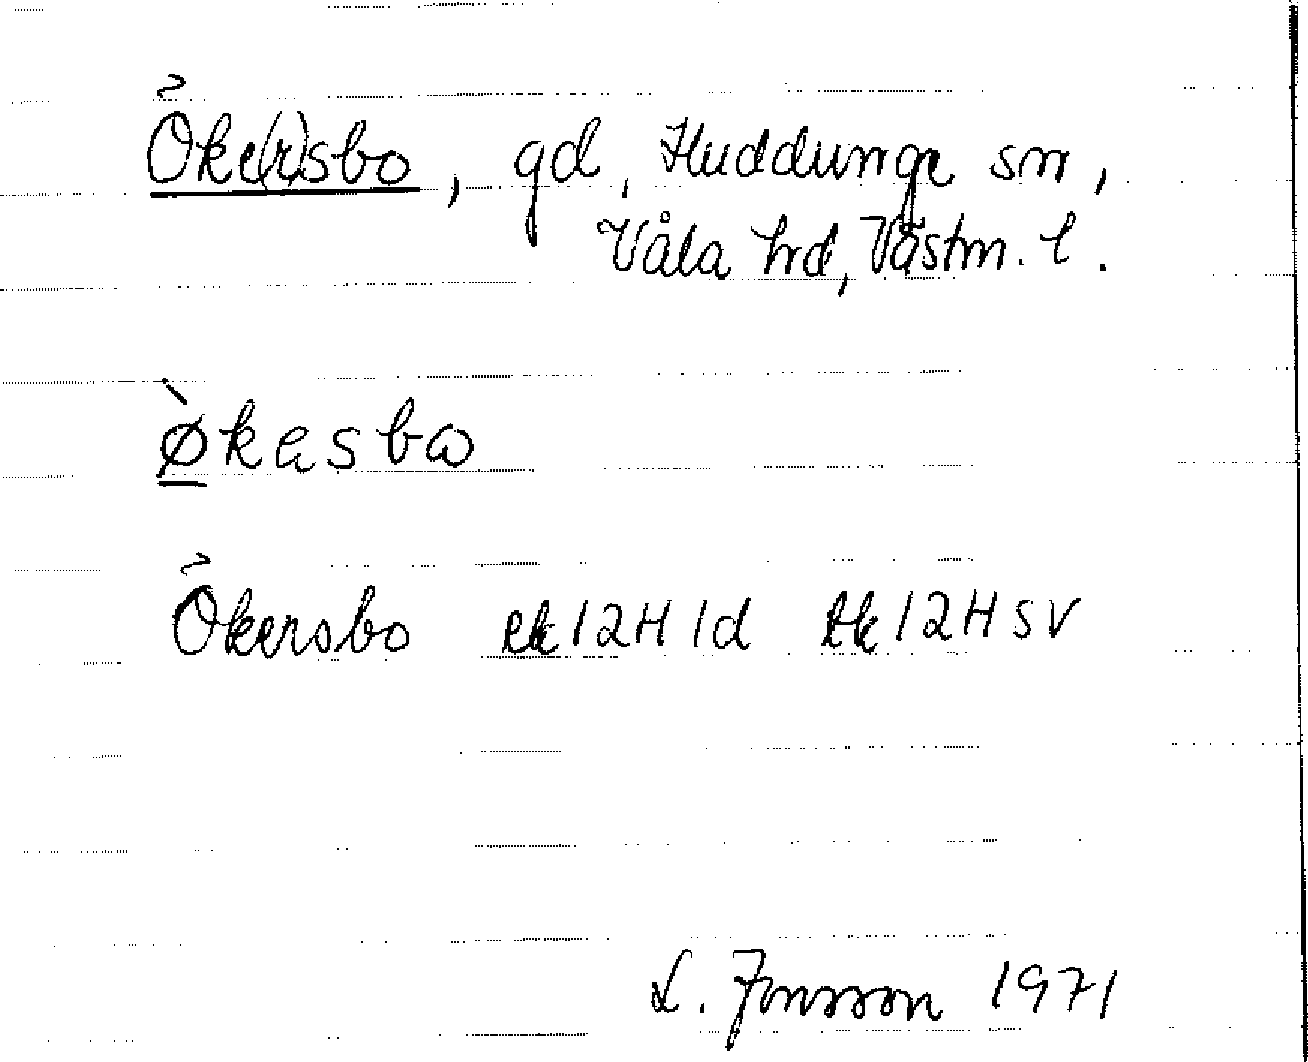 Öke(r)sbo, gd, Huddunge sn,
Våla hd, Västm. l.
ø̀kasbω
Ökersbo ek 12H 1d tk 12H SV
L. Jonsson 1971